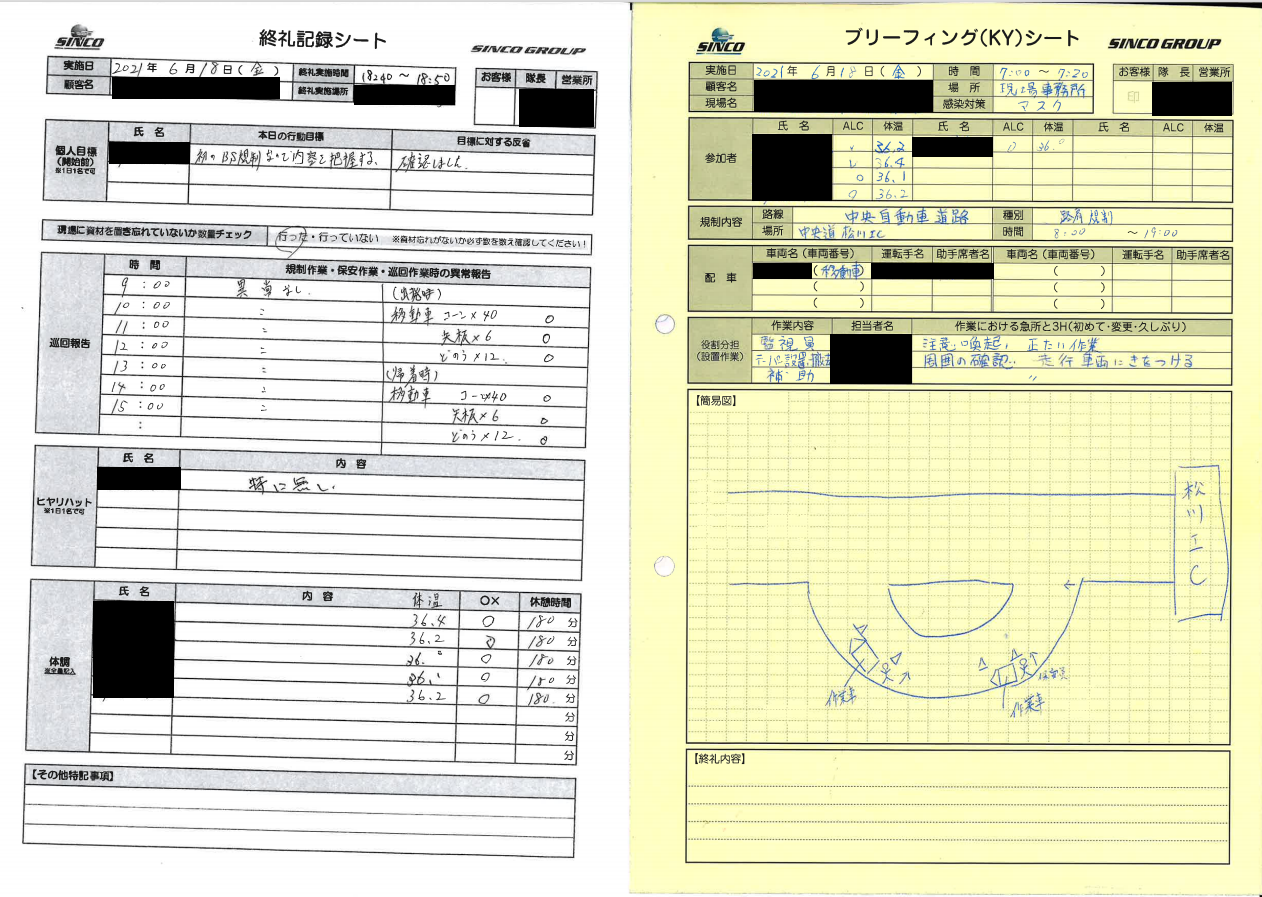 SINCO
終礼記録シート
SINCO GROUP
実施日
2021年 6月18日(金)
終礼実施時間
18:40 ～ 18:50
お客様 隊長 営業所
顧客名
終礼実施場所
個人目標
(開始前)
※1日1名で可
氏 名
本日の行動目標
目標に対する反省
初のBS規制なので内容を把握する。
確認しました。
現場に資材を置き忘れていないか数量チェック
行った・行っていない ※資材忘れがないか必ず数を数え確認してください!
巡回報告
時 間
規制作業・保安作業・巡回作業時の異常報告
9:00 異常なし。 (出発時)
10:00 〃 移動車 コーン×40 ○
11:00 〃 矢板×6 ○
12:00 〃 どのう×12. ○
13:00 〃 (帰着時)
14:00 〃 移動車 コーン×40 ○
15:00 〃 矢板×6 ○
: どのう×12. ○
ヒヤリハット
※1日1名で可
氏 名
内 容
特に無し.
体調
※全員記入
氏 名
内 容
体温
○×
休憩時間
36.4 ○ 180 分
36.2 ○ 180 分
36.0 ○ 180 分
36.1 ○ 180 分
36.2 ○ 180. 分
分
分
分
【その他特記事項】
SINCO
ブリーフィング(KY)シート
SINCO GROUP
実施日
2021年 6月18日(金)
時 間
7:00 ～ 7:20
お客様 隊 長 営業所
顧客名
場 所
現場事務所
現場名
感染対策
マスク
参加者
氏 名 ALC 体温 氏 名 ALC 体温 氏 名 ALC 体温
36.2 0 36.0
36.4
0 36.1
0 36.2
規制内容
路線
中央自動車道路
種別
路肩規制
場所
中央道 松川IC
時間
8:00 ～19:00
配 車
車両名(車両番号) 運転手名 助手席者名 車両名(車両番号) 運転手名 助手席者名
(移動車) ( )
( ) ( )
( ) ( )
役割分担
(設置作業)
作業内容 担当者名 作業における急所と3H(初めて・変更・久しぶり)
監視員 注意喚起, 正しい作業
テーパー設置・撤去 周囲の確認, 走行車両にきをつける
補 助 〃
【簡易図】
松川IC
作業車
作業車
【終礼内容】